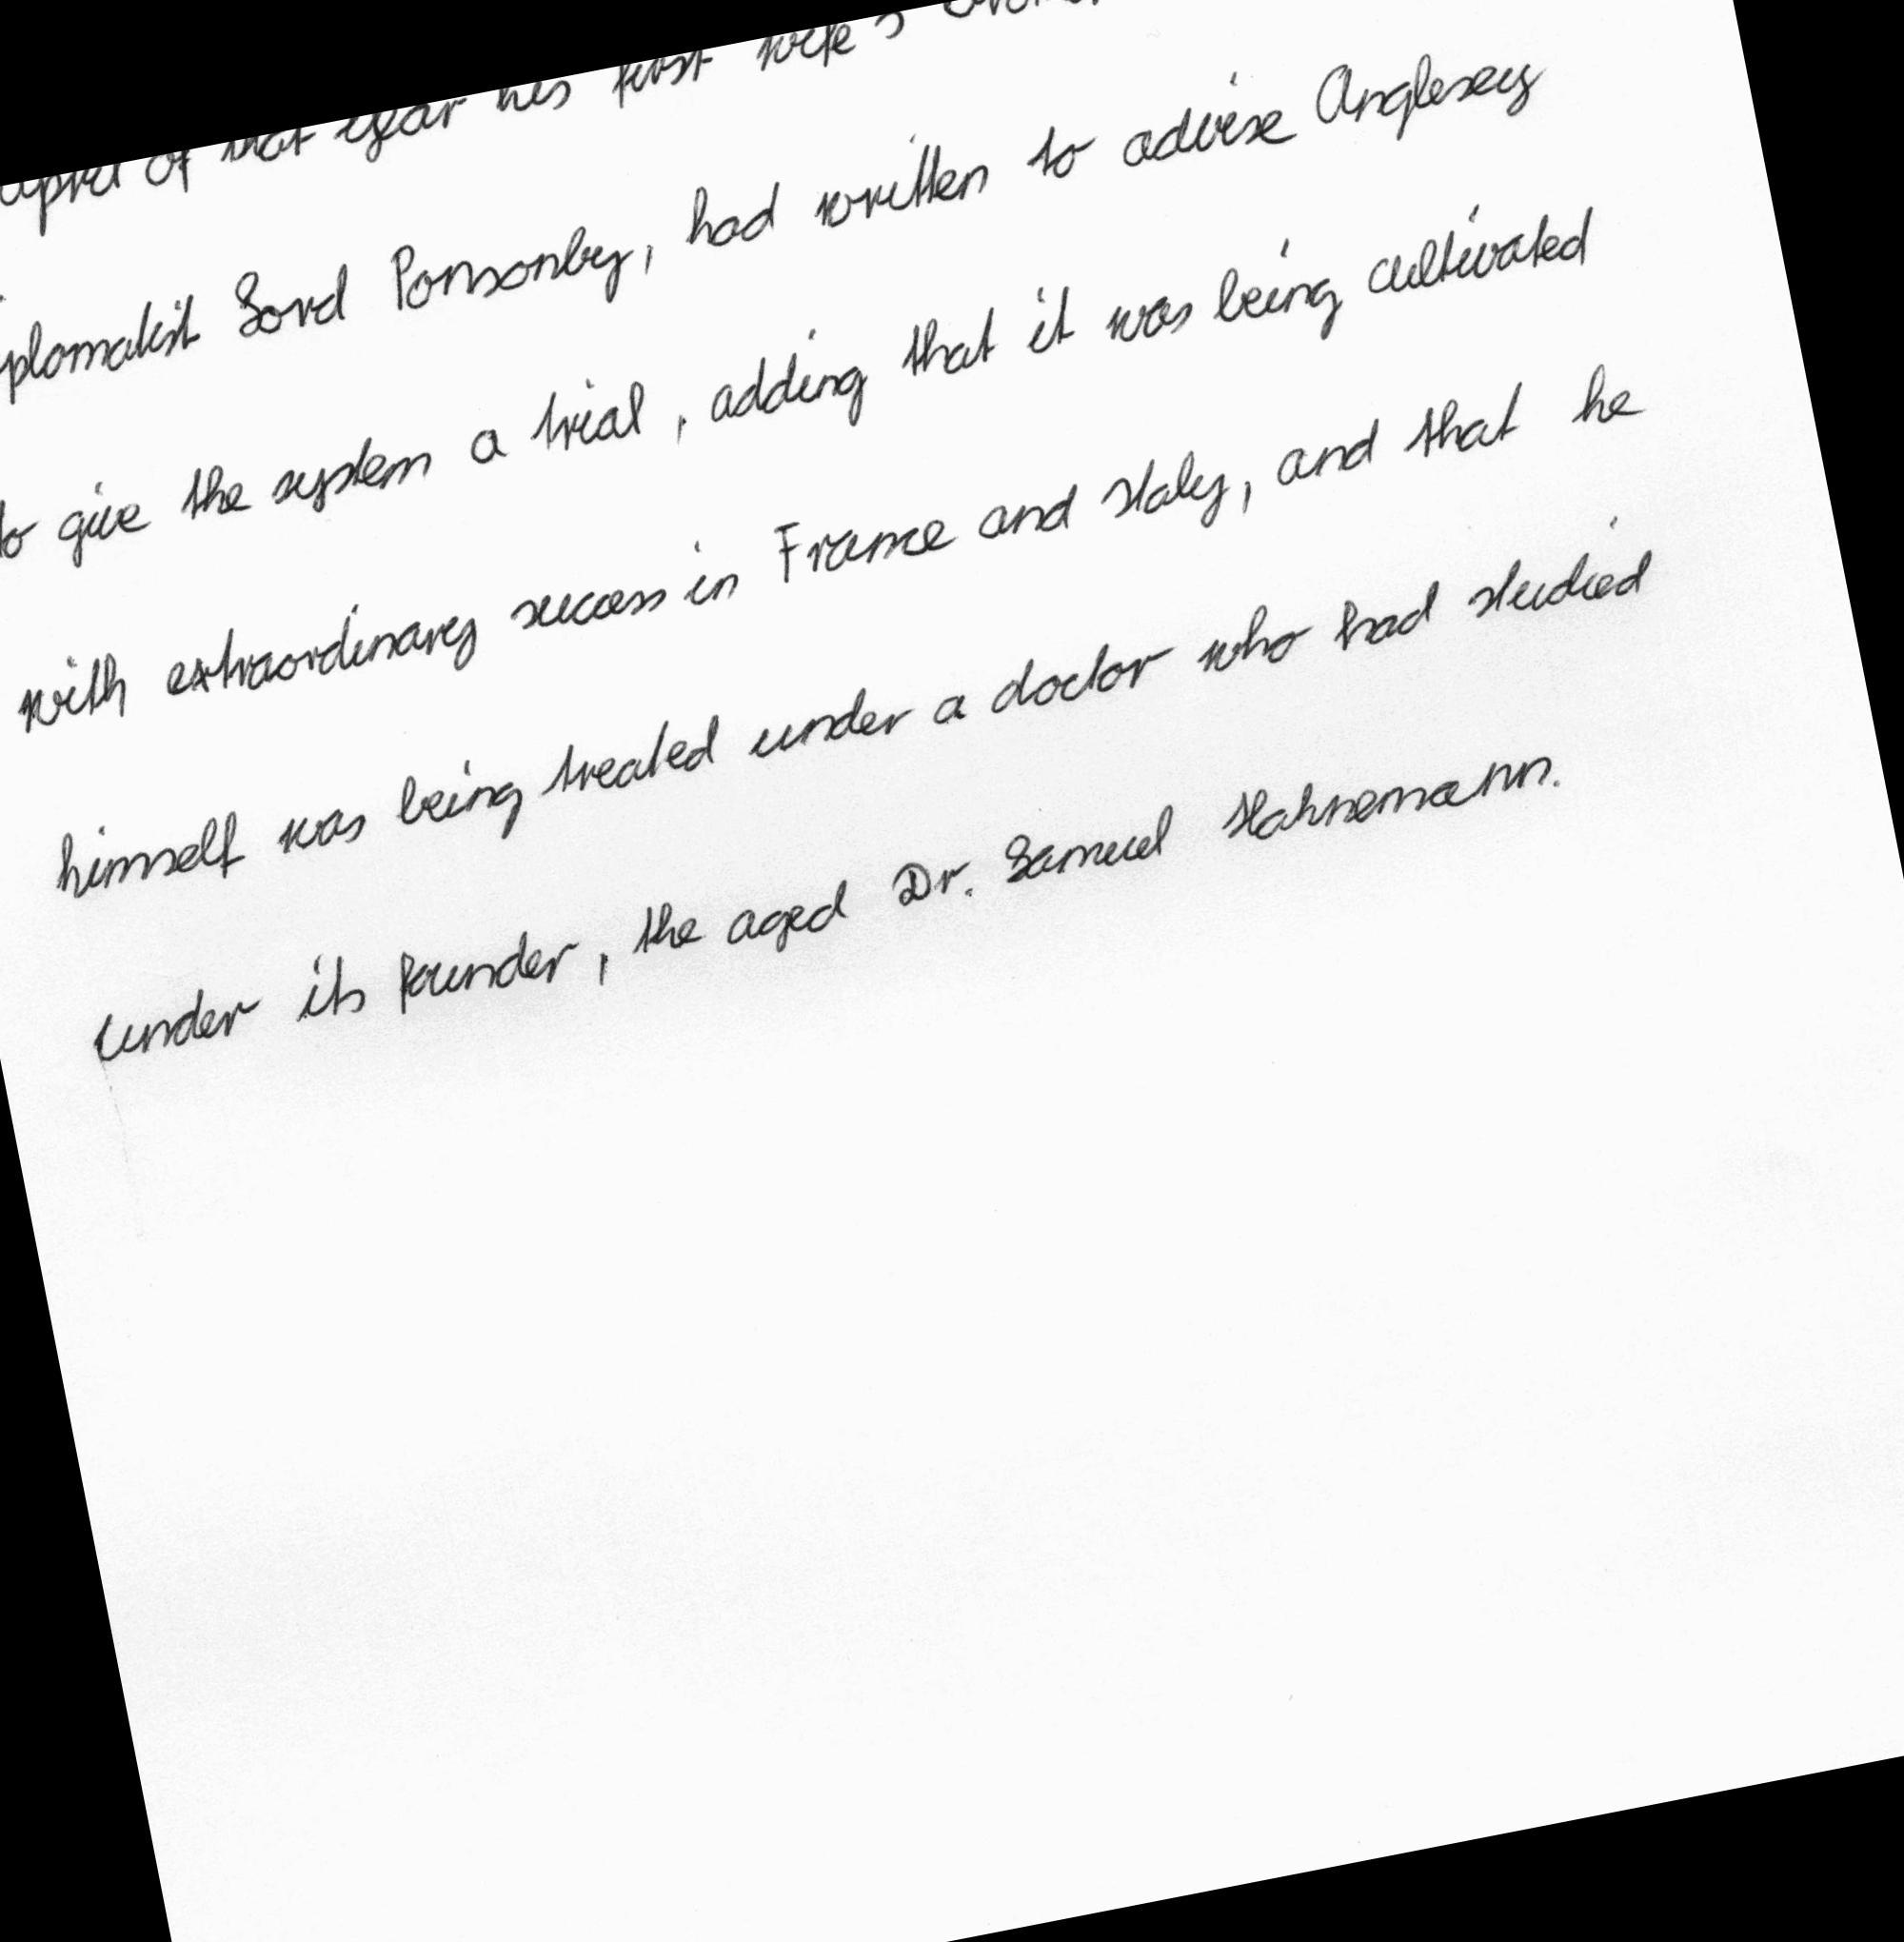 april of that year his first wife's
Lord Ponsonby, had written to advise Anglesey
to give the system a trial, adding that it was being cultivated
with extraordinary success in France and Italy, and that he
himself was being treated under a doctor who had studied
under its founder, the aged Dr. Samuel Hahnemann.